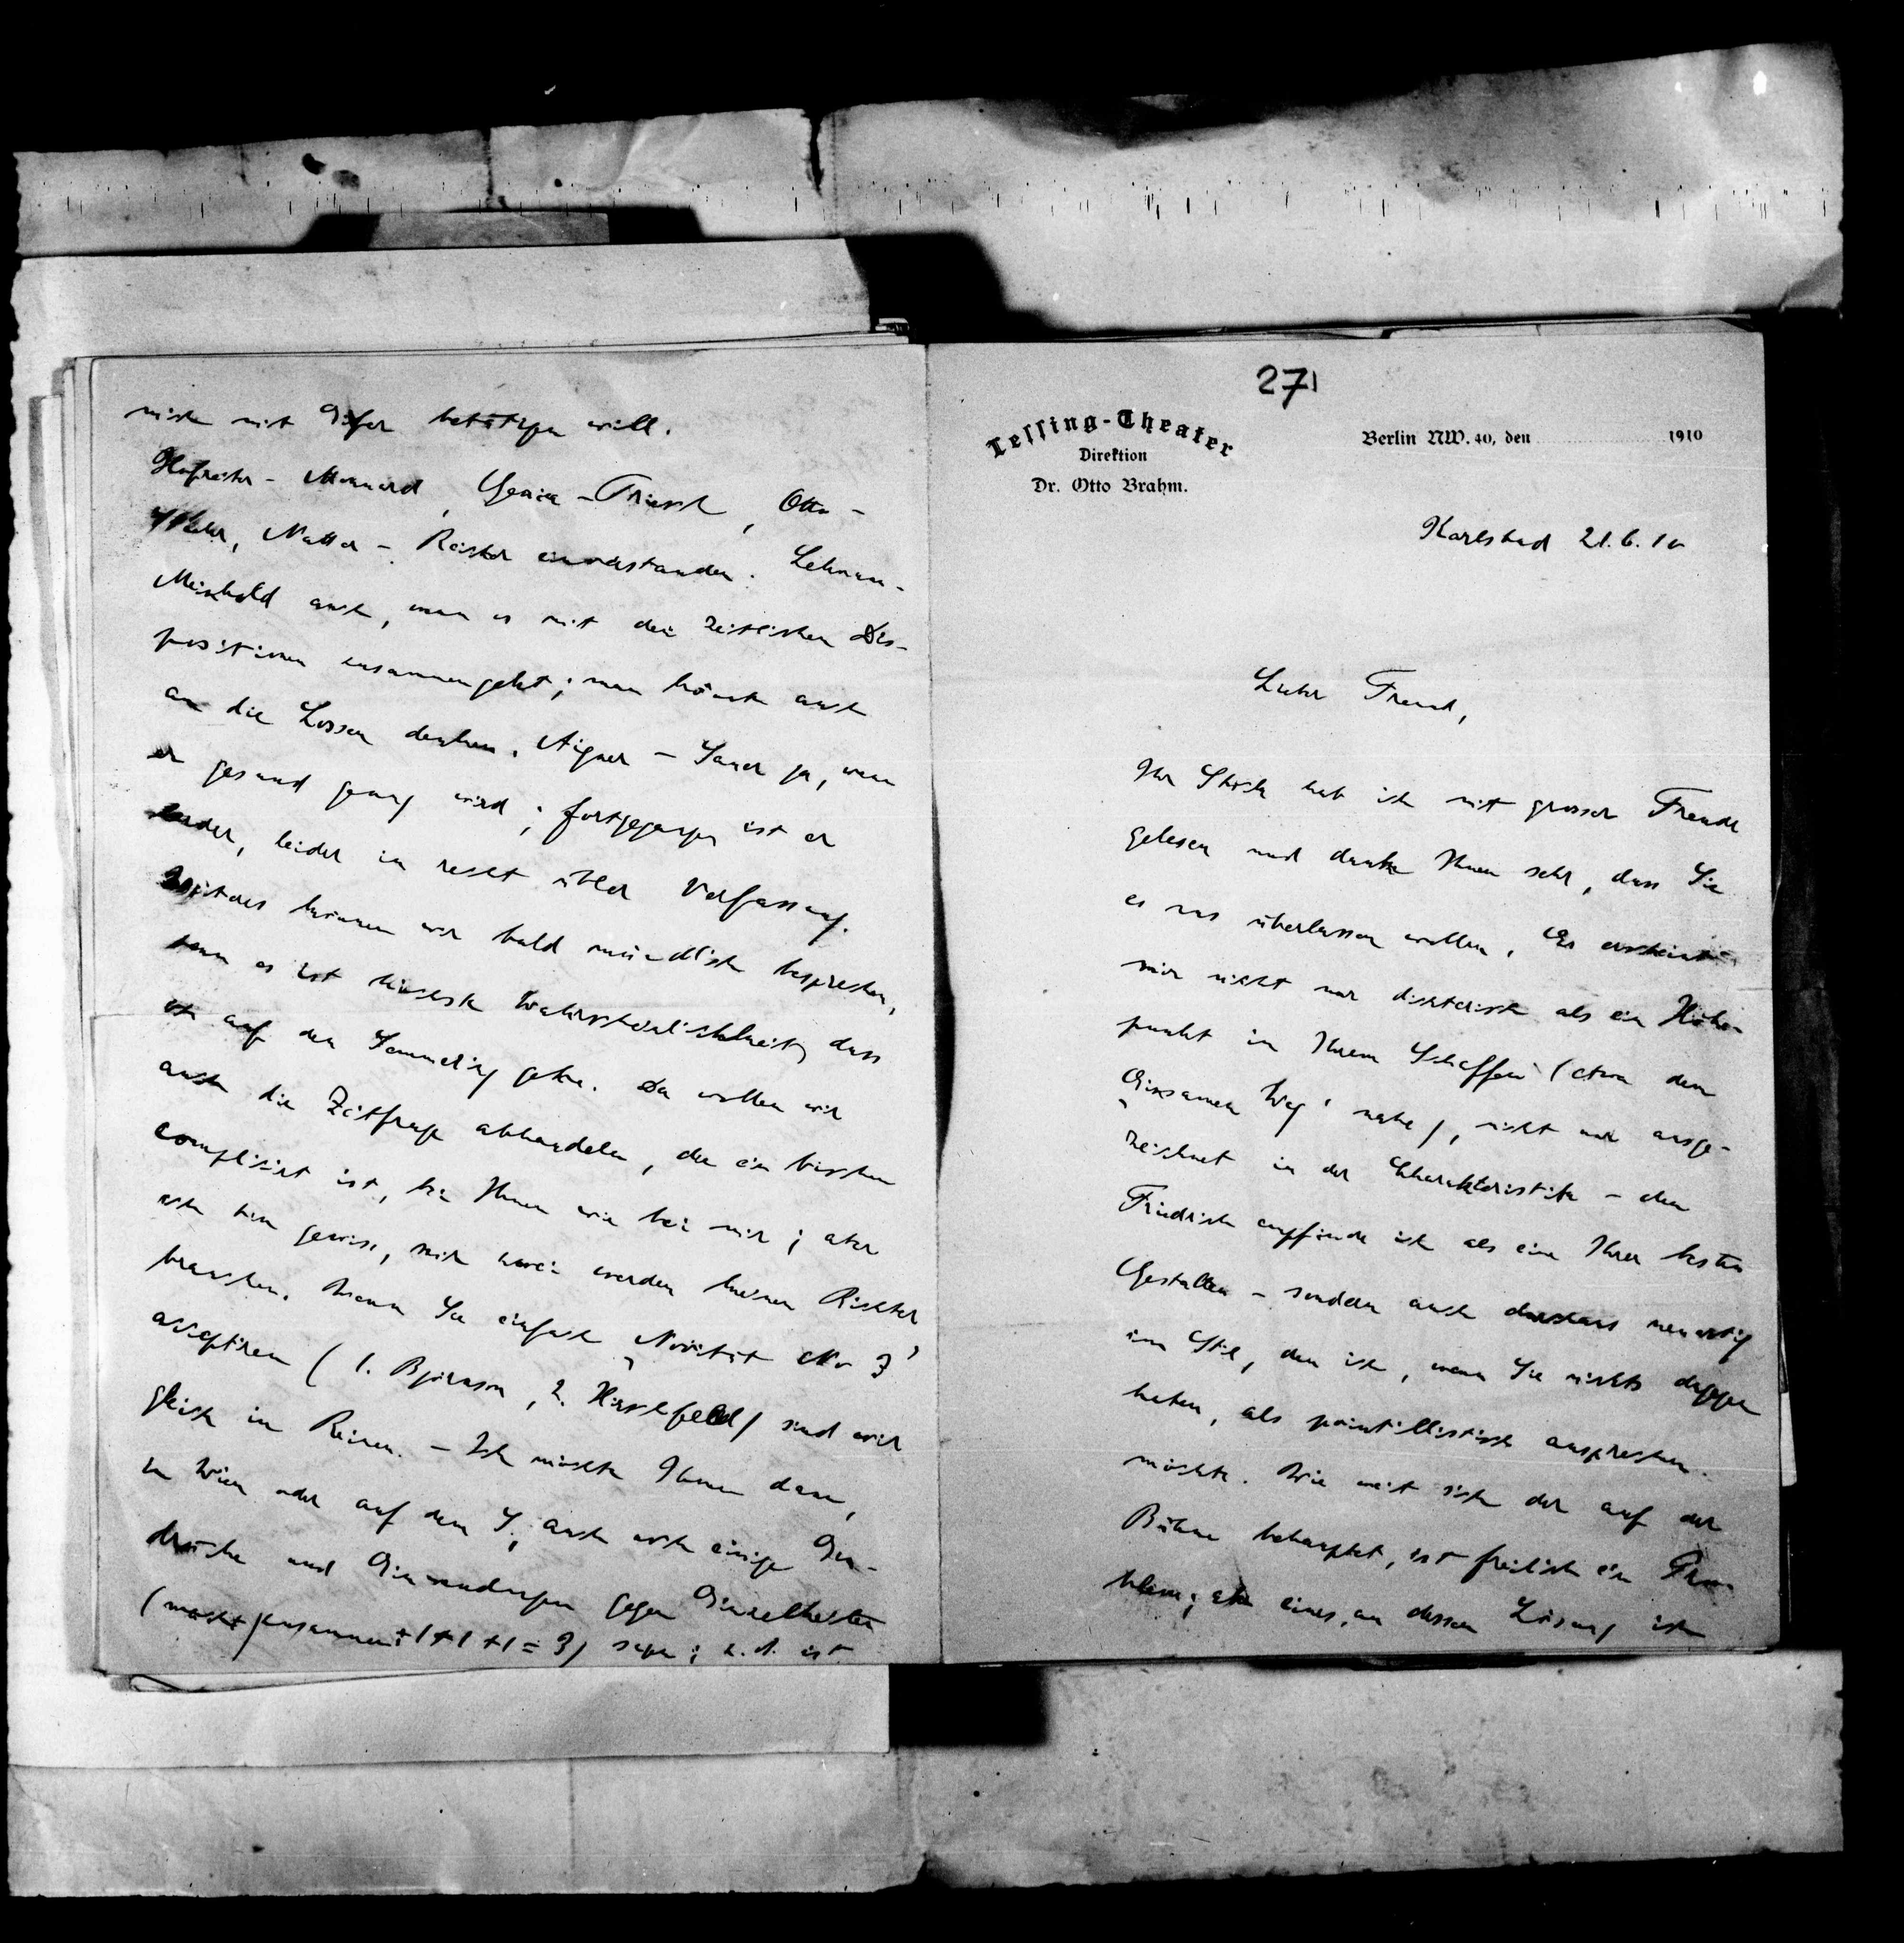 271
Lessing-Theater
Direktion
Dr. Otto Brahm.
Berlin NW. 40, den 1910
Karlsbad 21. 6. 10
Lieber Freund,
Ihr Stück hab ich mit grosser Freude
gelesen und danke Ihnen sehr, dass Sie
es uns überlassen wollen. Es erscheint
mir nicht nur dichterisch als ein Höhe-
punkt in Ihrem Schaffen (etwa dem
„Einsamen Weg‘ nahe), nicht nur ausge-
zeichnet in der Charakteristik – den
Friedrich empfinde ich als eine Ihrer besten
Gestalten – sondern auch durchaus neuartig
im Stil, den ich, wenn Sie nichts dagegen
haben, als pointillistisch ansprechen
möchte. Wie weit sich der auf der
Bühne behauptet, ist freilich ein Pro-
blem; aber eines, an dessen Lösung ich
mich mit Eifer betätigen will.
Hofreiter – Monnard, Genia – Triesch, Otto –
Stieler, Natter – Reicher einverstanden. Lehmann-
Meinhold auch, wenn es mit den zeitlichen Dis-
positionen zusammengeht; man könnte auch
an die Lossen denken. Aigner – Sauer ja, wenn
er gesund genug wird; fortgegangen ist er
leider, leider in recht übler Verfassung.
Weiteres können wir bald mündlich besprechen,
denn es ist höchste Wahrscheinlichkeit, dass
ich auf den Semmering gehe. Da wollen wir
auch die Zeitfrage abhandeln, die ein bisschen
complicirt ist, bei Ihnen wie bei mir; aber
ich bin gewiss, wir zwei werden keinen Richter
brauchen. Wenn Sie einfach „Novität No 3‘
acceptiren (1. Björnson, 2. Hirschfeld) sind wir
gleich im Reinen. – Ich möchte Ihnen dann,
in Wien oder auf dem S., auch noch einige Ein-
drücke und Einwendungen gegen Einzelheiten
(macht zusammen: 1 + 1 + 1 = 3) sagen; z. B. ist